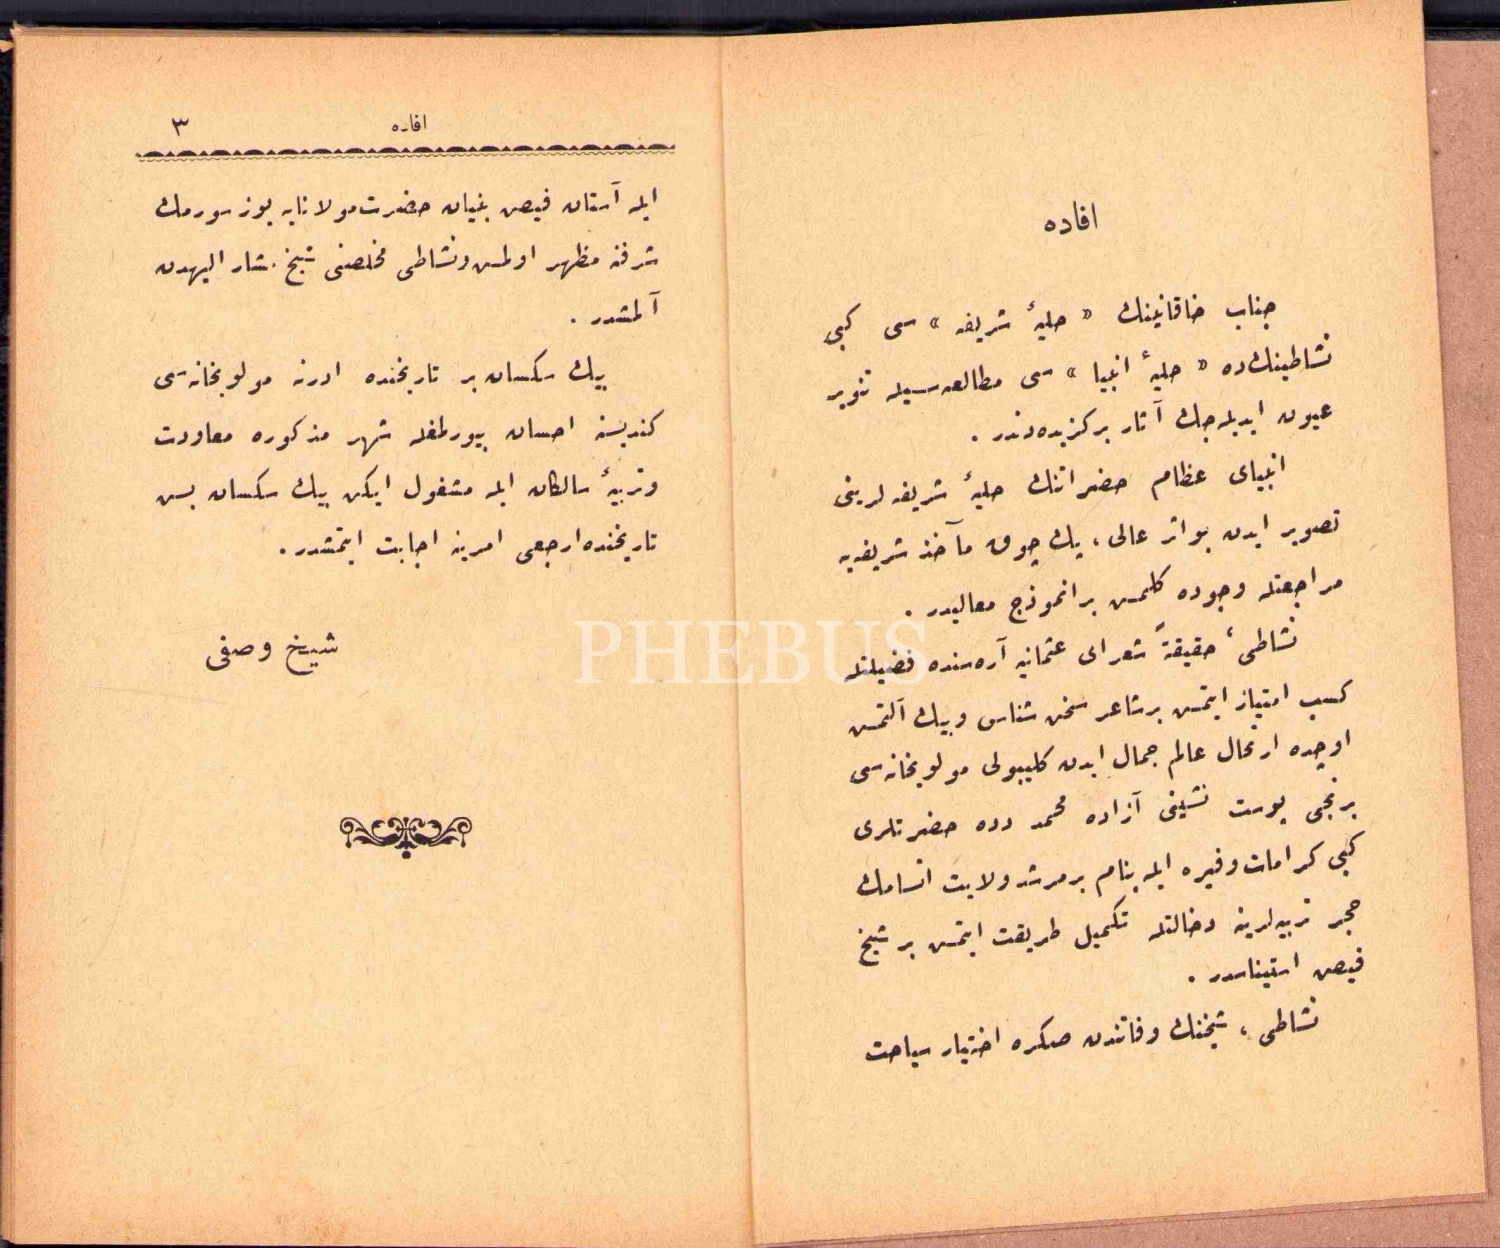 افاده
جناب خاقانینك « حلیهٔ شریفه » سی كبی
نشاطینك ده « حلیهٔ انبیا » سی مطالعه سیله تنویر
عیون ایدیله جك آثار برکزیده دندر .
انبیای عظام حضراتنك حلیهٔ شریفه لرینی
تصویر ایدن بو اثر عالی ، پك چوق مآخذ شریفه یه
مراجعتله وجوده کلمش بر انموذج معالیدر .
نشاطی ، حقیقةً شعرای عثمانیه آره سنده فضیلتله
کسب امتیاز ایتمش بر شاعر سخن شناس و بیك آلتمش
اوچده ارتحال عالم جمال ایدن کلیبولی مولویخانه سی
برنجی پوست نشینی آزاده محمد دده حضرتلری
کبی کرامات وفیره ایله بنام بر مرشد ولایت اتسامك
حجر تربیه لرینه دخالتله تکمیل طریقت ایتمش بر شیخ
فیض استیناسدر .
نشاطی ، شیخنك وفاتندن صکره اختیار سیاحت
افاده
٣
ایله آستان فیض بنیان حضرت مولانایه یوز سورمك
شرفنه مظهر اولمش ونشاطی مخلصنی شیخ مشار الیهدن
آلمشدر .
بیك سکسان بر تاریخنده ادرنه مولویخانه سی
کندیسنه احسان بیورلمغله شهر مذکوره معاودت
وتربیهٔ سالکان ایله مشغول ایکن بیك سکسان بش
تاریخنده ارجعی امرینه اجابت ایتمشدر .
شیخ وصفی
PHEBUS